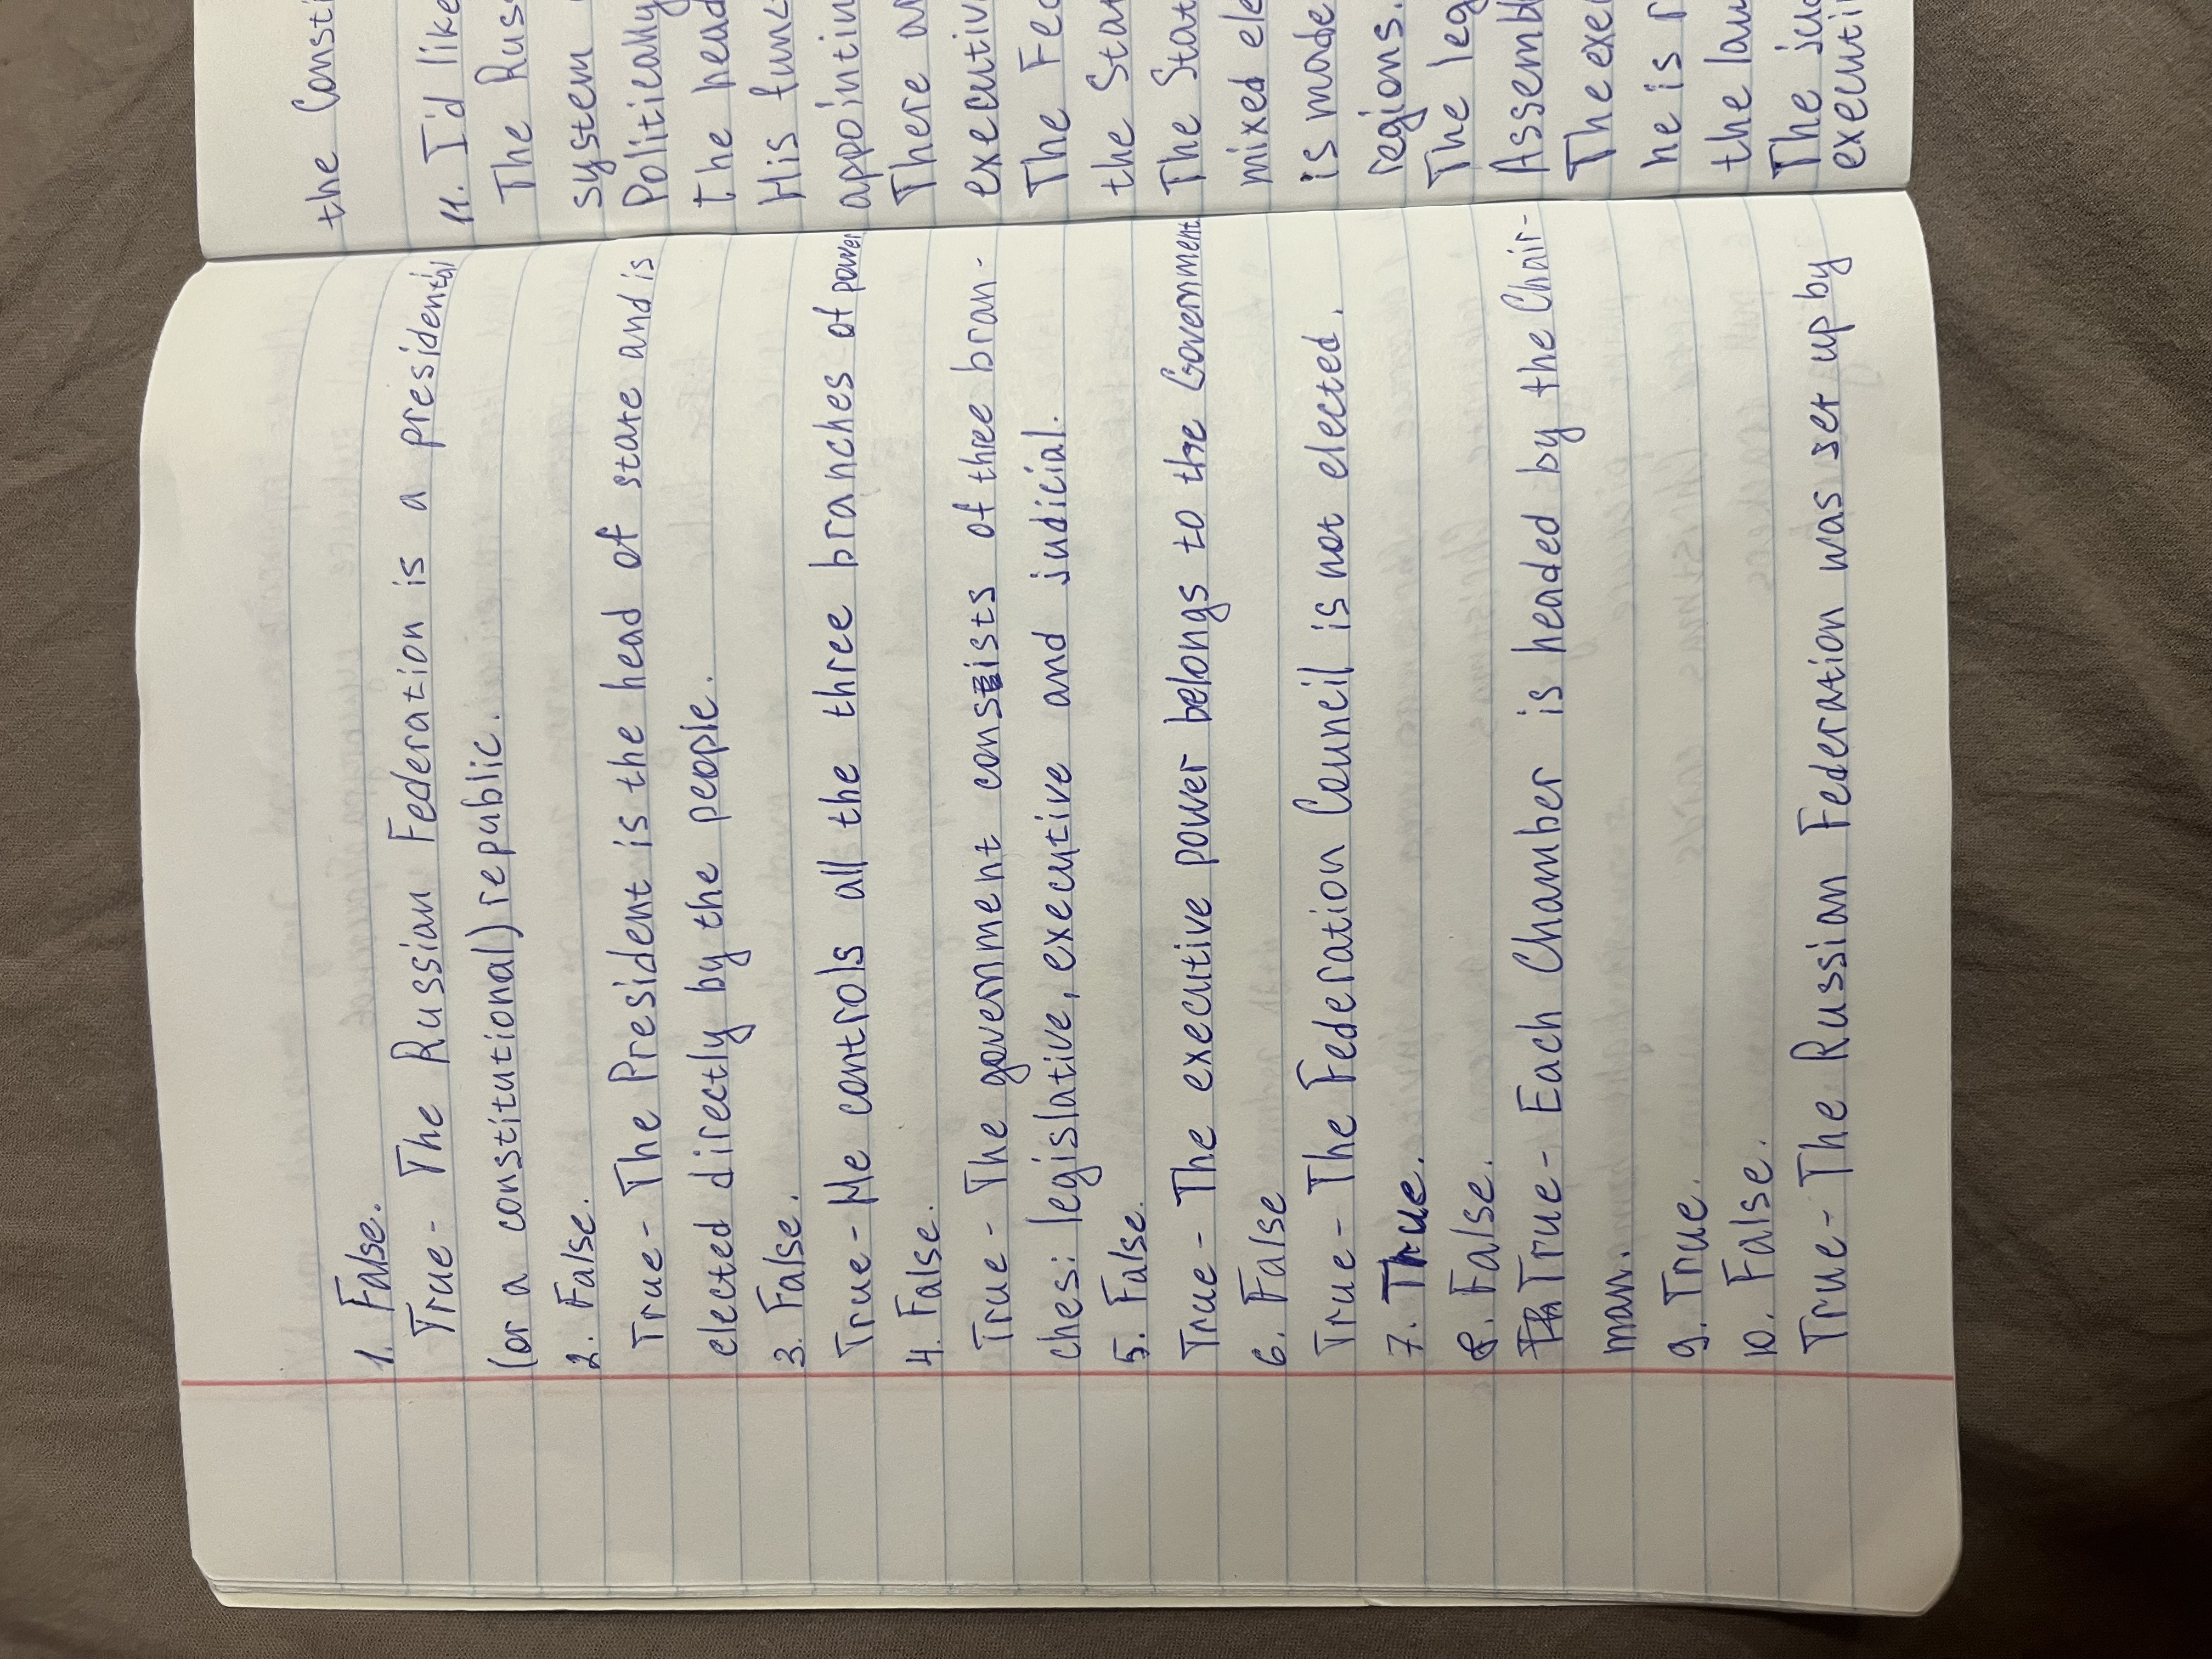 1. False.
True - The Russian Federation is a presidential
(or a constitutional) republic.
2. False.
True - The President is the head of state and is
elected directly by the people.
3. False.
True - He controls all the three branches of power
4. False.
True - The government consists of three bran-
ches: legislative, executive and judicial.
5. False.
True - The executive power belongs to the Government
6. False
True - The Federation Council is not elected.
7. True.
8. False.
True - Each Chamber is headed by the Chair-
man.
9. True.
10. False.
True - The Russian Federation was set up by
the Consti
11. I'd like
The Rus
system
Politically
the head
His func
appointin
There a
executiv
The Fe
the Sta
The Stat
mixed ele
is made
regions.
The leg
Assemb
The exe
he is
the law
The jud
executi